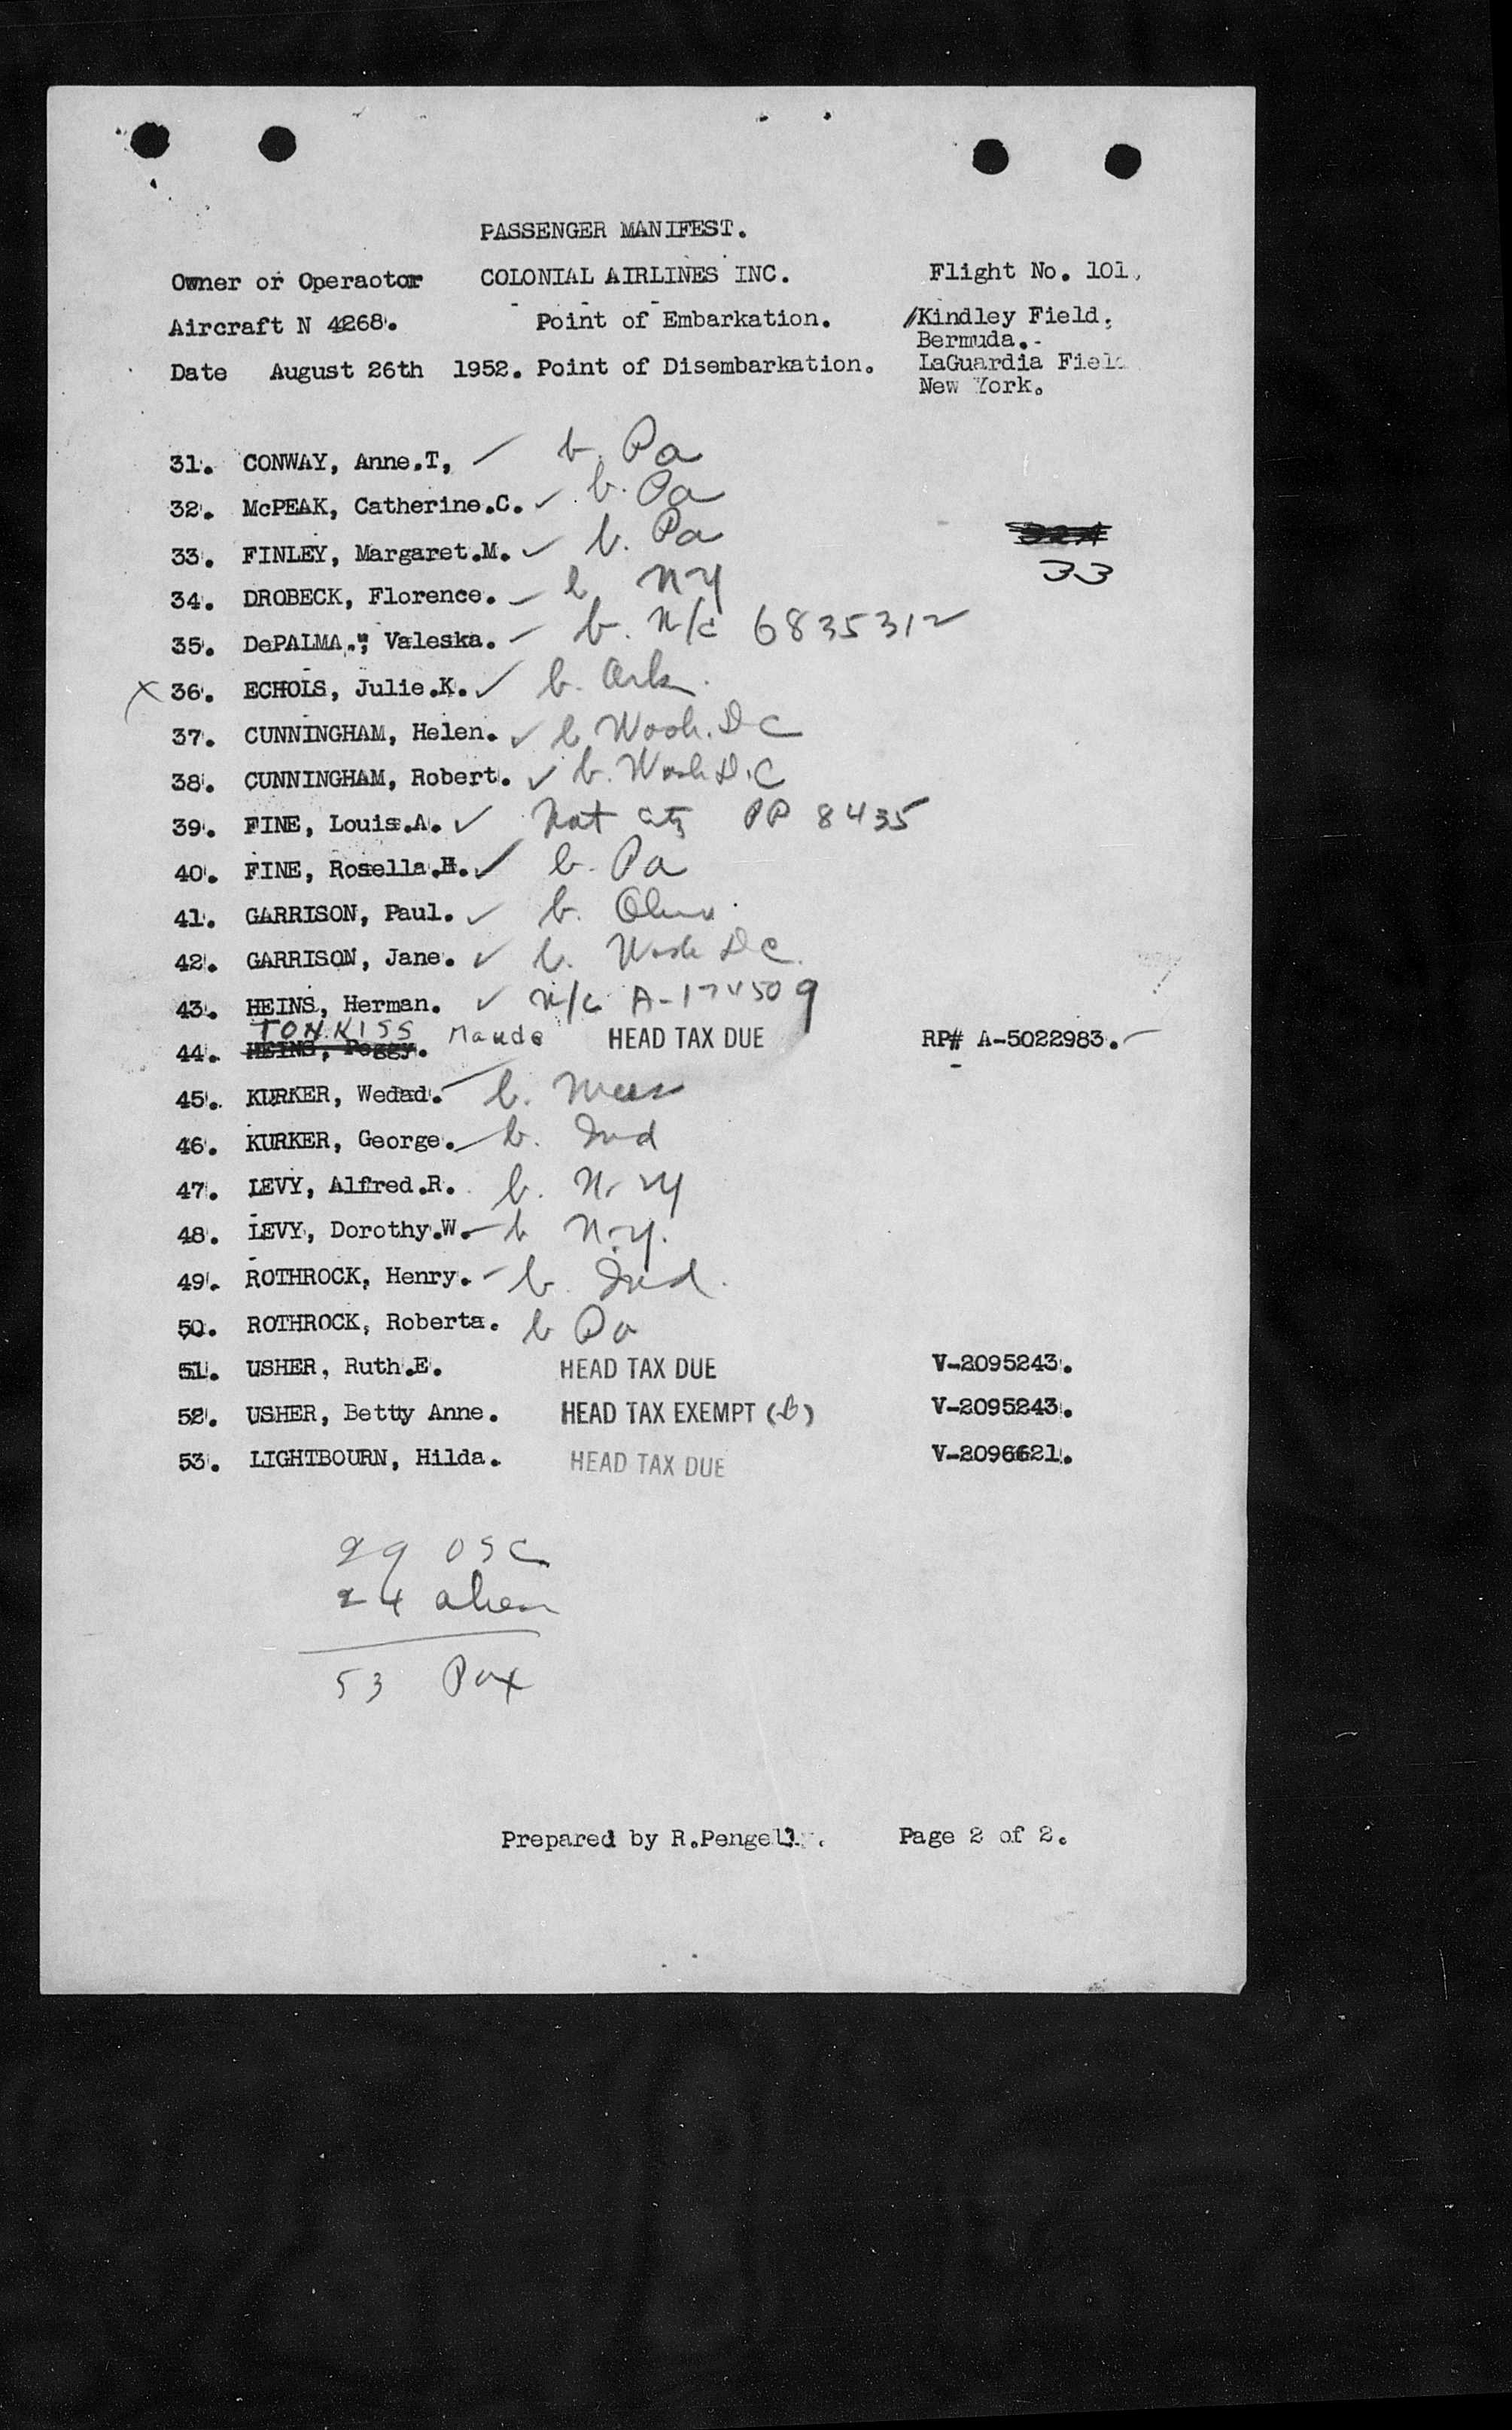 PASSENGER MANIFEST.
Owner or Operaotor COLONIAL AIRLINES INC. Flight No. 101.
Aircraft N 4268. Point of Embarkation. /Kindley Field.
Bermuda.-
Date August 26th 1952. Point of Disembarkation. LaGuardia Field
New York.
31. CONWAY, Anne.T, ✓ b. Pa
32. McPEAK, Catherine.C. ✓ b. Pa
33. FINLEY, Margaret.M. ✓ b. Pa
33
34. DROBECK, Florence. b NY
35. DePALMA.", Valeska. b. n/c 6835312
x 36. ECHOLS, Julie.K. ✓ b. Ark.
37. CUNNINGHAM, Helen. ✓ b Wash. DC
38. CUNNINGHAM, Robert. ✓ b. Wash D.C
39. FINE, Louis.A. ✓ Nat ctz PP 8435
40. FINE, Rosella.H. ✓ b. Pa
41. GARRISON, Paul. ✓ b. Ohio.
42. GARRISON, Jane. ✓ b. Wash DC.
43. HEINS, Herman. ✓ n/c A-174509
TONKISS Maude
44. HEINS, Peggy. HEAD TAX DUE RP# A-5022983.
45. KURKER, Wedad. b. Mass
46. KURKER, George. b. Ind
47. LEVY, Alfred.R. b. N.Y
48. LEVY, Dorothy.W. b N.Y.
49. ROTHROCK, Henry. b. Ind.
50. ROTHROCK, Roberta. b Pa
51. USHER, Ruth.E. HEAD TAX DUE V-2095243.
52. USHER, Betty Anne. HEAD TAX EXEMPT (b) V-2095243.
53. LIGHTBOURN, Hilda. HEAD TAX DUE V-2096621.
29 USC
24 alien
53 Pax
Prepared by R.Pengelly. Page 2 of 2.